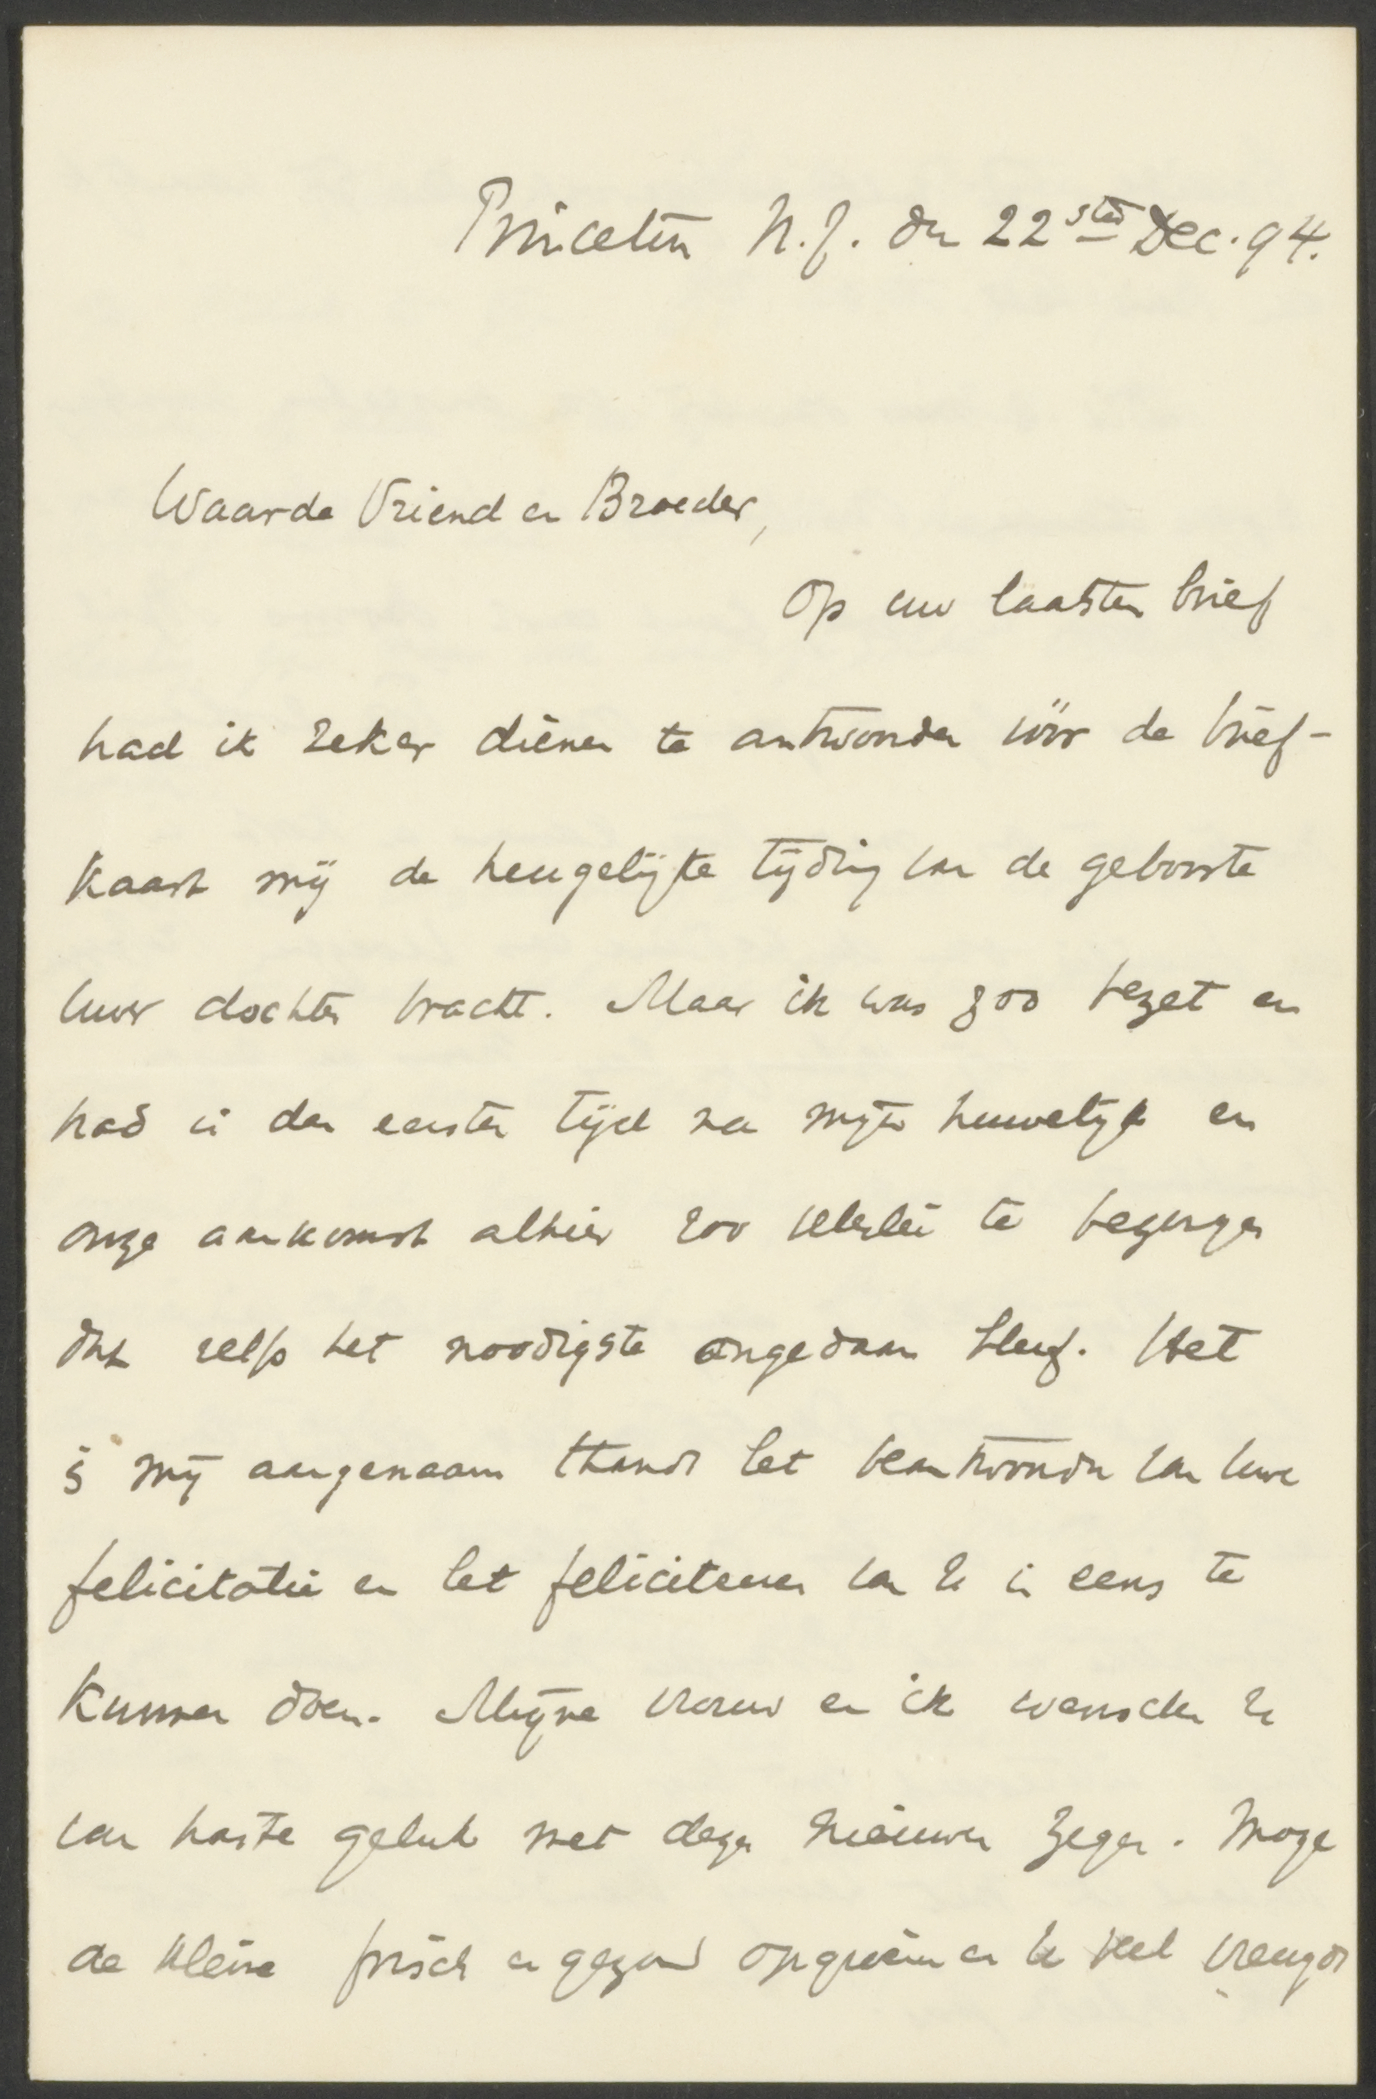 Princeton N.J. den 22sten Dec. 94.
Waarde Vriend en Broeder,
Op uw laatsten brief
had ik zeker dienen te antwoorden vóór de brief-
kaart mij de heugelijke tijding van de geboorte
uwer dochter bracht. Maar ik was zoo bezet en
had in den eersten tijd na mijn huwelijk en
onze aankomst alhier zoo velerlei te bezorgen
dat zelfs het noodigste ongedaan bleef. Het
is mij aangenaam thands het beantwoorden van uwe
felicitatie en het feliciteeren van U in eens te
kunnen doen. Mijne vrouw en ik wenschen U
van harte geluk met dezen nieuwen zegen. Moge
de kleine frisch en gezond opgroeien en U veel vreugde